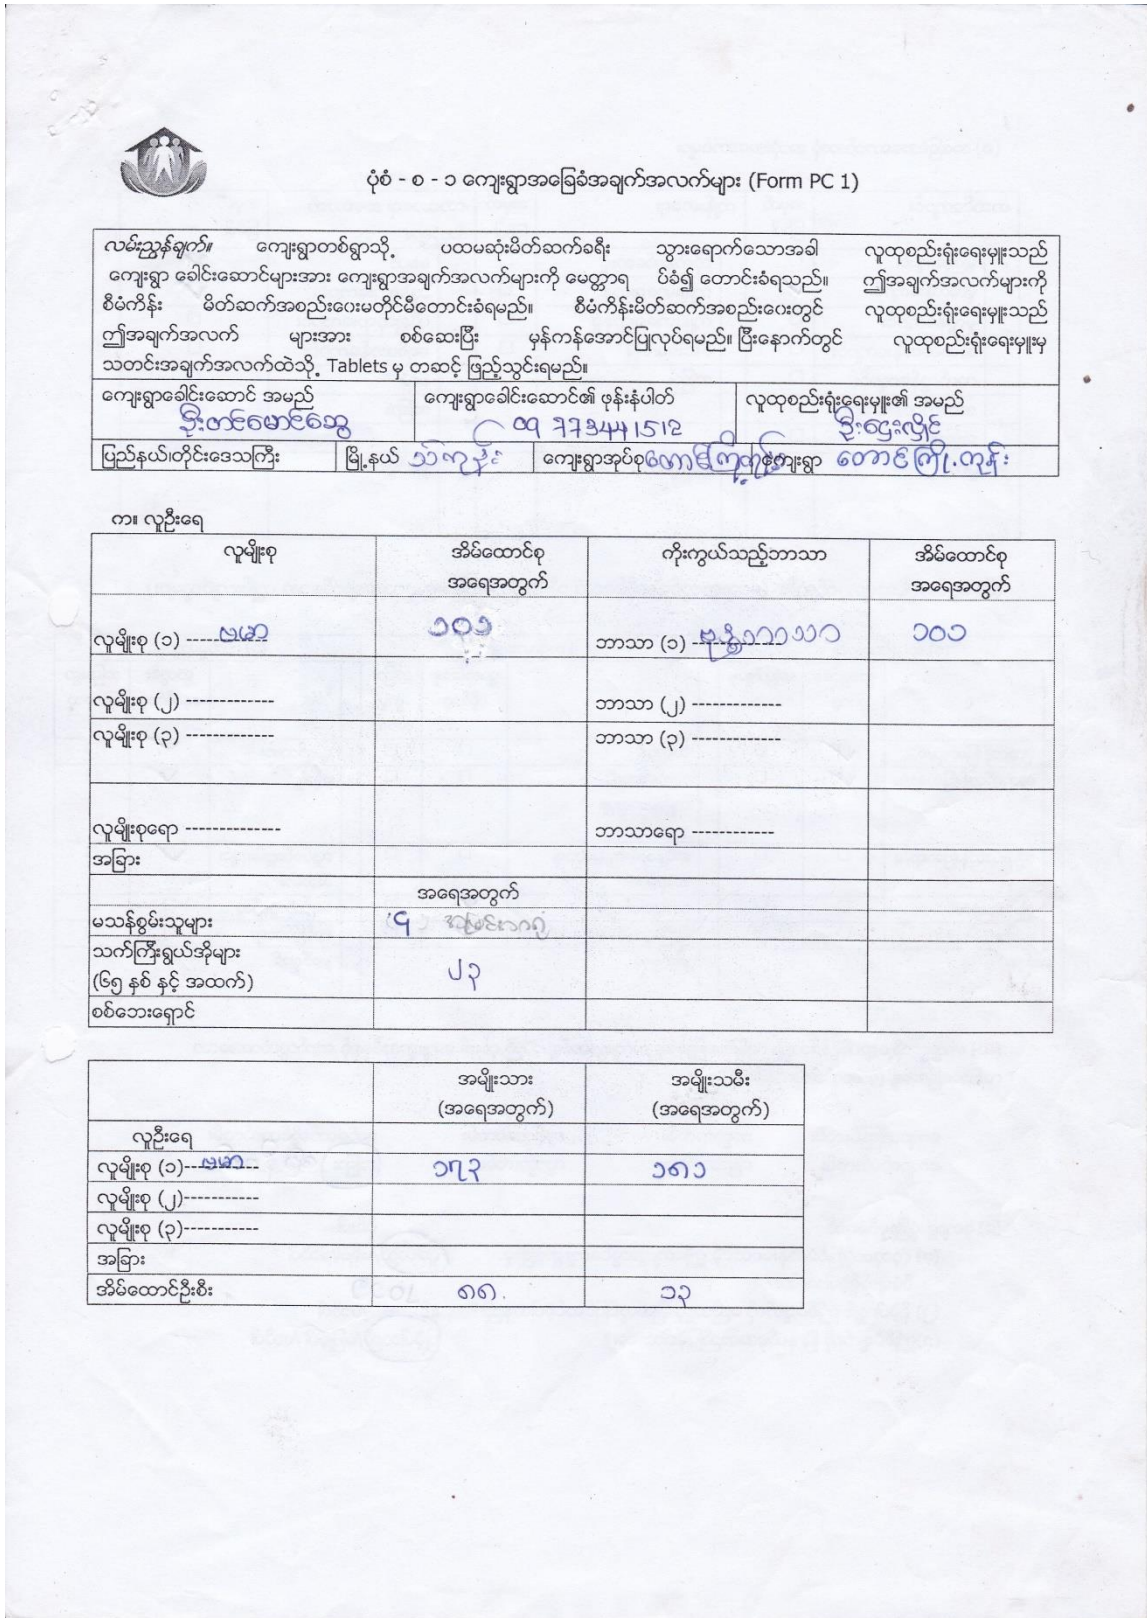 ပုံစံ - စ - ၁ ကျေးရွာအခြေခံအချက်အလက်များ (Form PC 1)
လမ်းညွှန်ချက်။ ကျေးရွာတစ်ရွာသို့ ပထမဆုံးမိတ်ဆက်ခရီး သွားရောက်သောအခါ လူထုစည်းရုံးရေးမှူးသည်
ကျေးရွာ ခေါင်းဆောင်များအား ကျေးရွာအချက်အလက်များကို မေတ္တာရ ပ်ခံ၍ တောင်းခံရသည်။ ဤအချက်အလက်များကို
စီမံကိန်း မိတ်ဆက်အစည်းဝေးမတိုင်မီတောင်းခံရမည်။ စီမံကိန်းမိတ်ဆက်အစည်းဝေးတွင် လူထုစည်းရုံးရေးမှူးသည်
ဤအချက်အလက် များအား စစ်ဆေးပြီး မှန်ကန်အောင်ပြုလုပ်ရမည်။ ပြီးနောက်တွင် လူထုစည်းရုံးရေးမှူးမှ
သတင်းအချက်အလက်ထဲသို့ Tablets မှ တဆင့် ဖြည့်သွင်းရမည်။
ကျေးရွာခေါင်းဆောင် အမည် ကျေးရွာခေါင်းဆောင်၏ ဖုန်းနံပါတ် လူထုစည်းရုံးရေးမှူး၏ အမည်
ဦးတင်မောင်ဆွေ 09 773441512 ဦးဌေးလှိုင်
ပြည်နယ်၊တိုင်းဒေသကြီး မြို့နယ် ကျေးရွာအုပ်စု တောင်ကြို့ကုန်း ကျေးရွာ တောင်ကြို့ကုန်း
က။ လူဦးရေ
လူမျိုးစု အိမ်ထောင်စု ကိုးကွယ်သည့်ဘာသာ အိမ်ထောင်စု
အရေအတွက် အရေအတွက်
လူမျိုးစု (၁) ----- ဗမာ ၁၀၁ ဘာသာ (၁) -- ဗုဒ္ဓဘာသာ ၁၀၁
လူမျိုးစု (၂) ------------- ဘာသာ (၂) -------------
လူမျိုးစု (၃) ------------- ဘာသာ (၃) -------------
လူမျိုးစုရော -------------- ဘာသာရော ------------
အခြား
အရေအတွက်
မသန်စွမ်းသူများ ၎
သက်ကြီးရွယ်အိုများ
(၆၅ နှစ် နှင့် အထက်) ၂၃
စစ်ဘေးရှောင်
အမျိုးသား အမျိုးသမီး
(အရေအတွက်) (အရေအတွက်)
လူဦးရေ
လူမျိုးစု (၁)-- ဗမာ ---- ၁၇၃ ၁၈၁
လူမျိုးစု (၂)-----------
လူမျိုးစု (၃)-----------
အခြား
အိမ်ထောင်ဦးစီး ၈၈ ၁၃